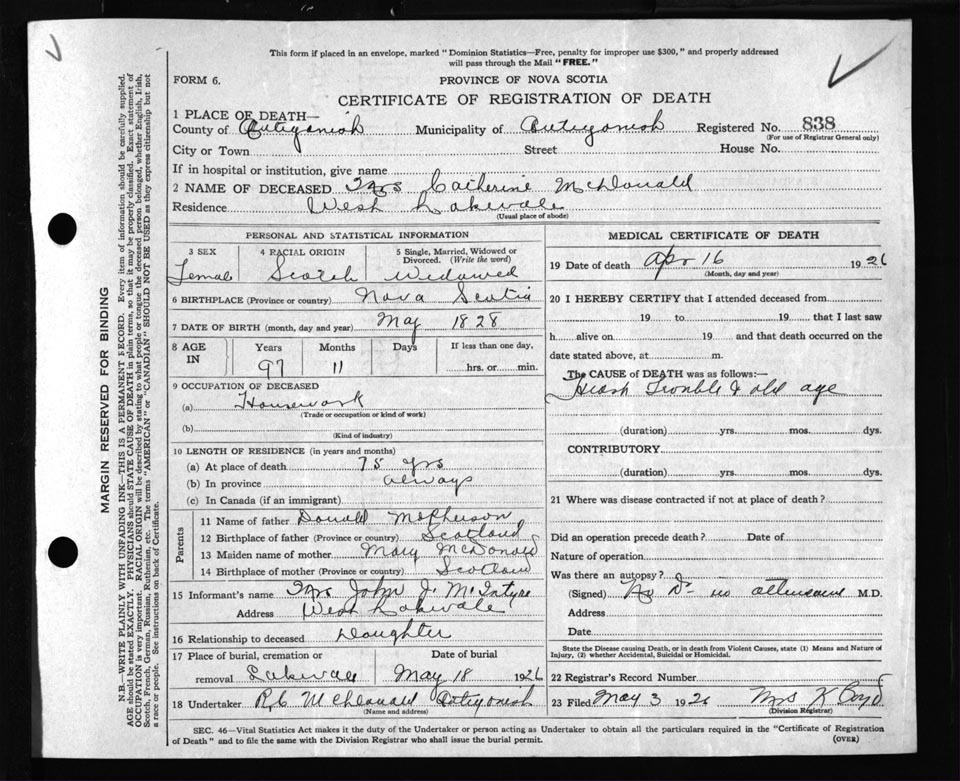 This form if placed in an envelope, marked "Dominion Statistics—Free, penalty for improper use $300," and properly addressed
will pass through the Mail "FREE."
FORM 6.
PROVINCE OF NOVA SCOTIA
CERTIFICATE OF REGISTRATION OF DEATH
1 PLACE OF DEATH—
County of Antigonish Municipality of Antigonish Registered No. 838
(For use of Registrar General only)
City or Town Street House No.
If in hospital or institution, give name
2 NAME OF DECEASED Mrs Catherine McDonald
Residence West Lakevale
(Usual place of abode)
PERSONAL AND STATISTICAL INFORMATION
3 SEX 4 RACIAL ORIGIN 5 Single, Married, Widowed or Divorced. (Write the word)
Female Scotch Widowed
6 BIRTHPLACE (Province or country) Nova Scotia
7 DATE OF BIRTH (month, day and year) May 1828
8 AGE IN Years Months Days If less than one day,
97 11 hrs. or min.
9 OCCUPATION OF DECEASED
(a) Housework
(Trade or occupation or kind of work)
(b)
(Kind of industry)
10 LENGTH OF RESIDENCE (in years and months)
(a) At place of death 75 yrs
(b) In province always
(c) In Canada (if an immigrant)
Parents
11 Name of father Donald McPherson
12 Birthplace of father (Province or country) Scotland
13 Maiden name of mother Mary McDonald
14 Birthplace of mother (Province or country) Scotland
15 Informant's name Mrs John J. McIntyre
Address West Lakevale
16 Relationship to deceased Daughter
17 Place of burial, cremation or removal Date of burial
Lakevale May 18 1926
18 Undertaker R C McDonald Antigonish
(Name and address)
MEDICAL CERTIFICATE OF DEATH
19 Date of death Apr 16 1926
(Month, day and year)
20 I HEREBY CERTIFY that I attended deceased from
19 to 19 that I last saw
h alive on 19 and that death occurred on the
date stated above, at m.
The CAUSE of DEATH was as follows:—
Heart Trouble & old age
(duration) yrs. mos. dys.
CONTRIBUTORY
(duration) yrs. mos. dys.
21 Where was disease contracted if not at place of death?
Did an operation precede death? Date of
Nature of operation
Was there an autopsy?
(Signed) No Dr in attendance M.D.
Address
Date
State the Disease causing Death, or in death from Violent Causes, state (1) Means and Nature of
Injury, (2) whether Accidental, Suicidal or Homicidal.
22 Registrar's Record Number
23 Filed May 3 1926 Mrs K Boyd
(Division Registrar)
SEC. 46—Vital Statistics Act makes it the duty of the Undertaker or person acting as Undertaker to obtain all the particulars required in the "Certificate of Registration
of Death" and to file the same with the Division Registrar who shall issue the burial permit.
(OVER)
MARGIN RESERVED FOR BINDING
N.B.—WRITE PLAINLY WITH UNFADING INK—THIS IS A PERMANENT RECORD. Every item of information should be carefully supplied.
AGE should be stated EXACTLY. PHYSICIANS should STATE CAUSE OF DEATH in plain terms, so that it may be properly classified. Exact statement of
OCCUPATION is very important. RACIAL ORIGIN will be described by stating to what people or tongue the deceased person belonged, whether English, Irish,
Scotch, French, German, Russian, Ruthenian, etc. The terms "AMERICAN" or "CANADIAN" SHOULD NOT BE USED as they express citizenship but not
a race or people. See instructions on back of Certificate.